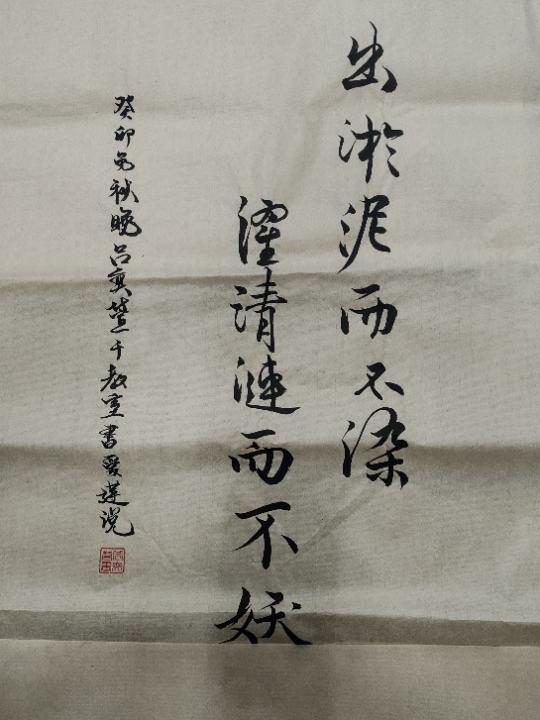 出淤泥而不染
濯清涟而不妖
癸卯年秋晚吕奕萱于教室书爱莲说